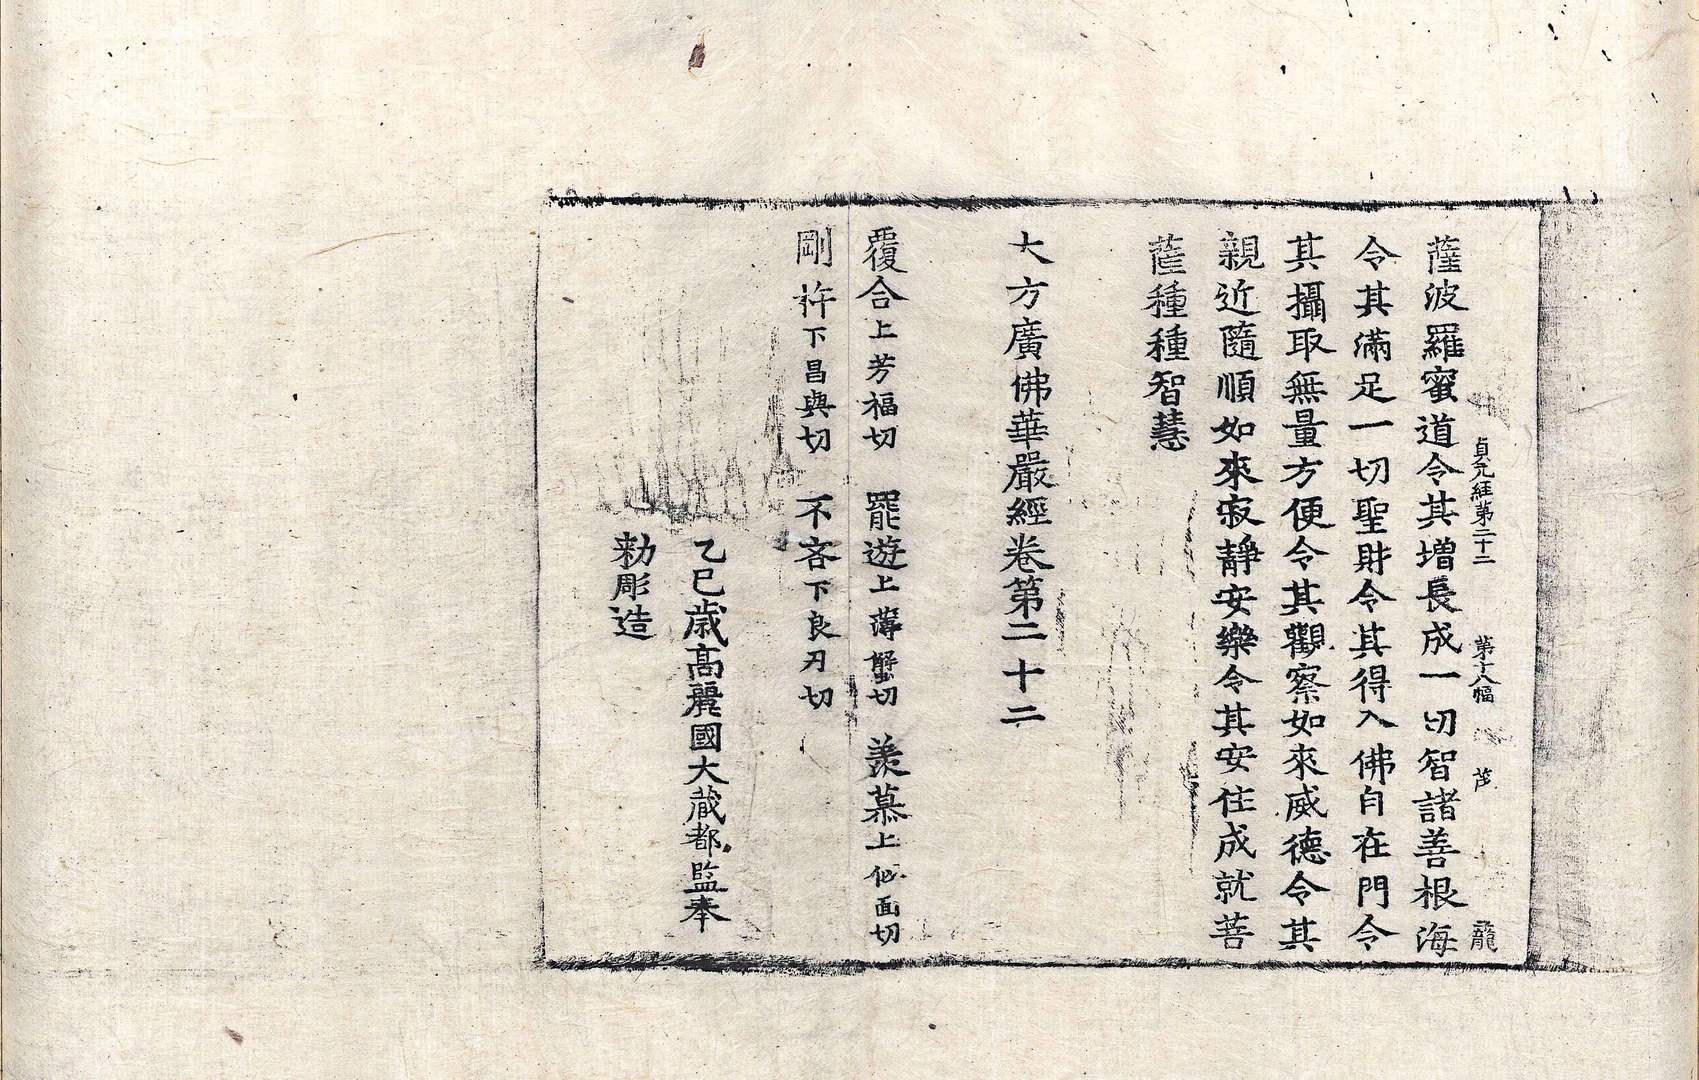 貞元経第二十二 第十八幅 龍
薩波羅蜜道令其增長成一切智諸善根海
令其滿足一切聖財令其得入佛自在門令
其攝取無量方便令其觀察如來威德令其
親近隨順如來寂靜安樂令其安住成就菩
薩種種智慧
大方廣佛華嚴經卷第二十二
覆合上芳福切 罷遊上薄蟹切 羨慕上似面切
剛杵下昌與切 不吝下良刃切
乙巳歲高麗國大藏都監奉
勑彫造